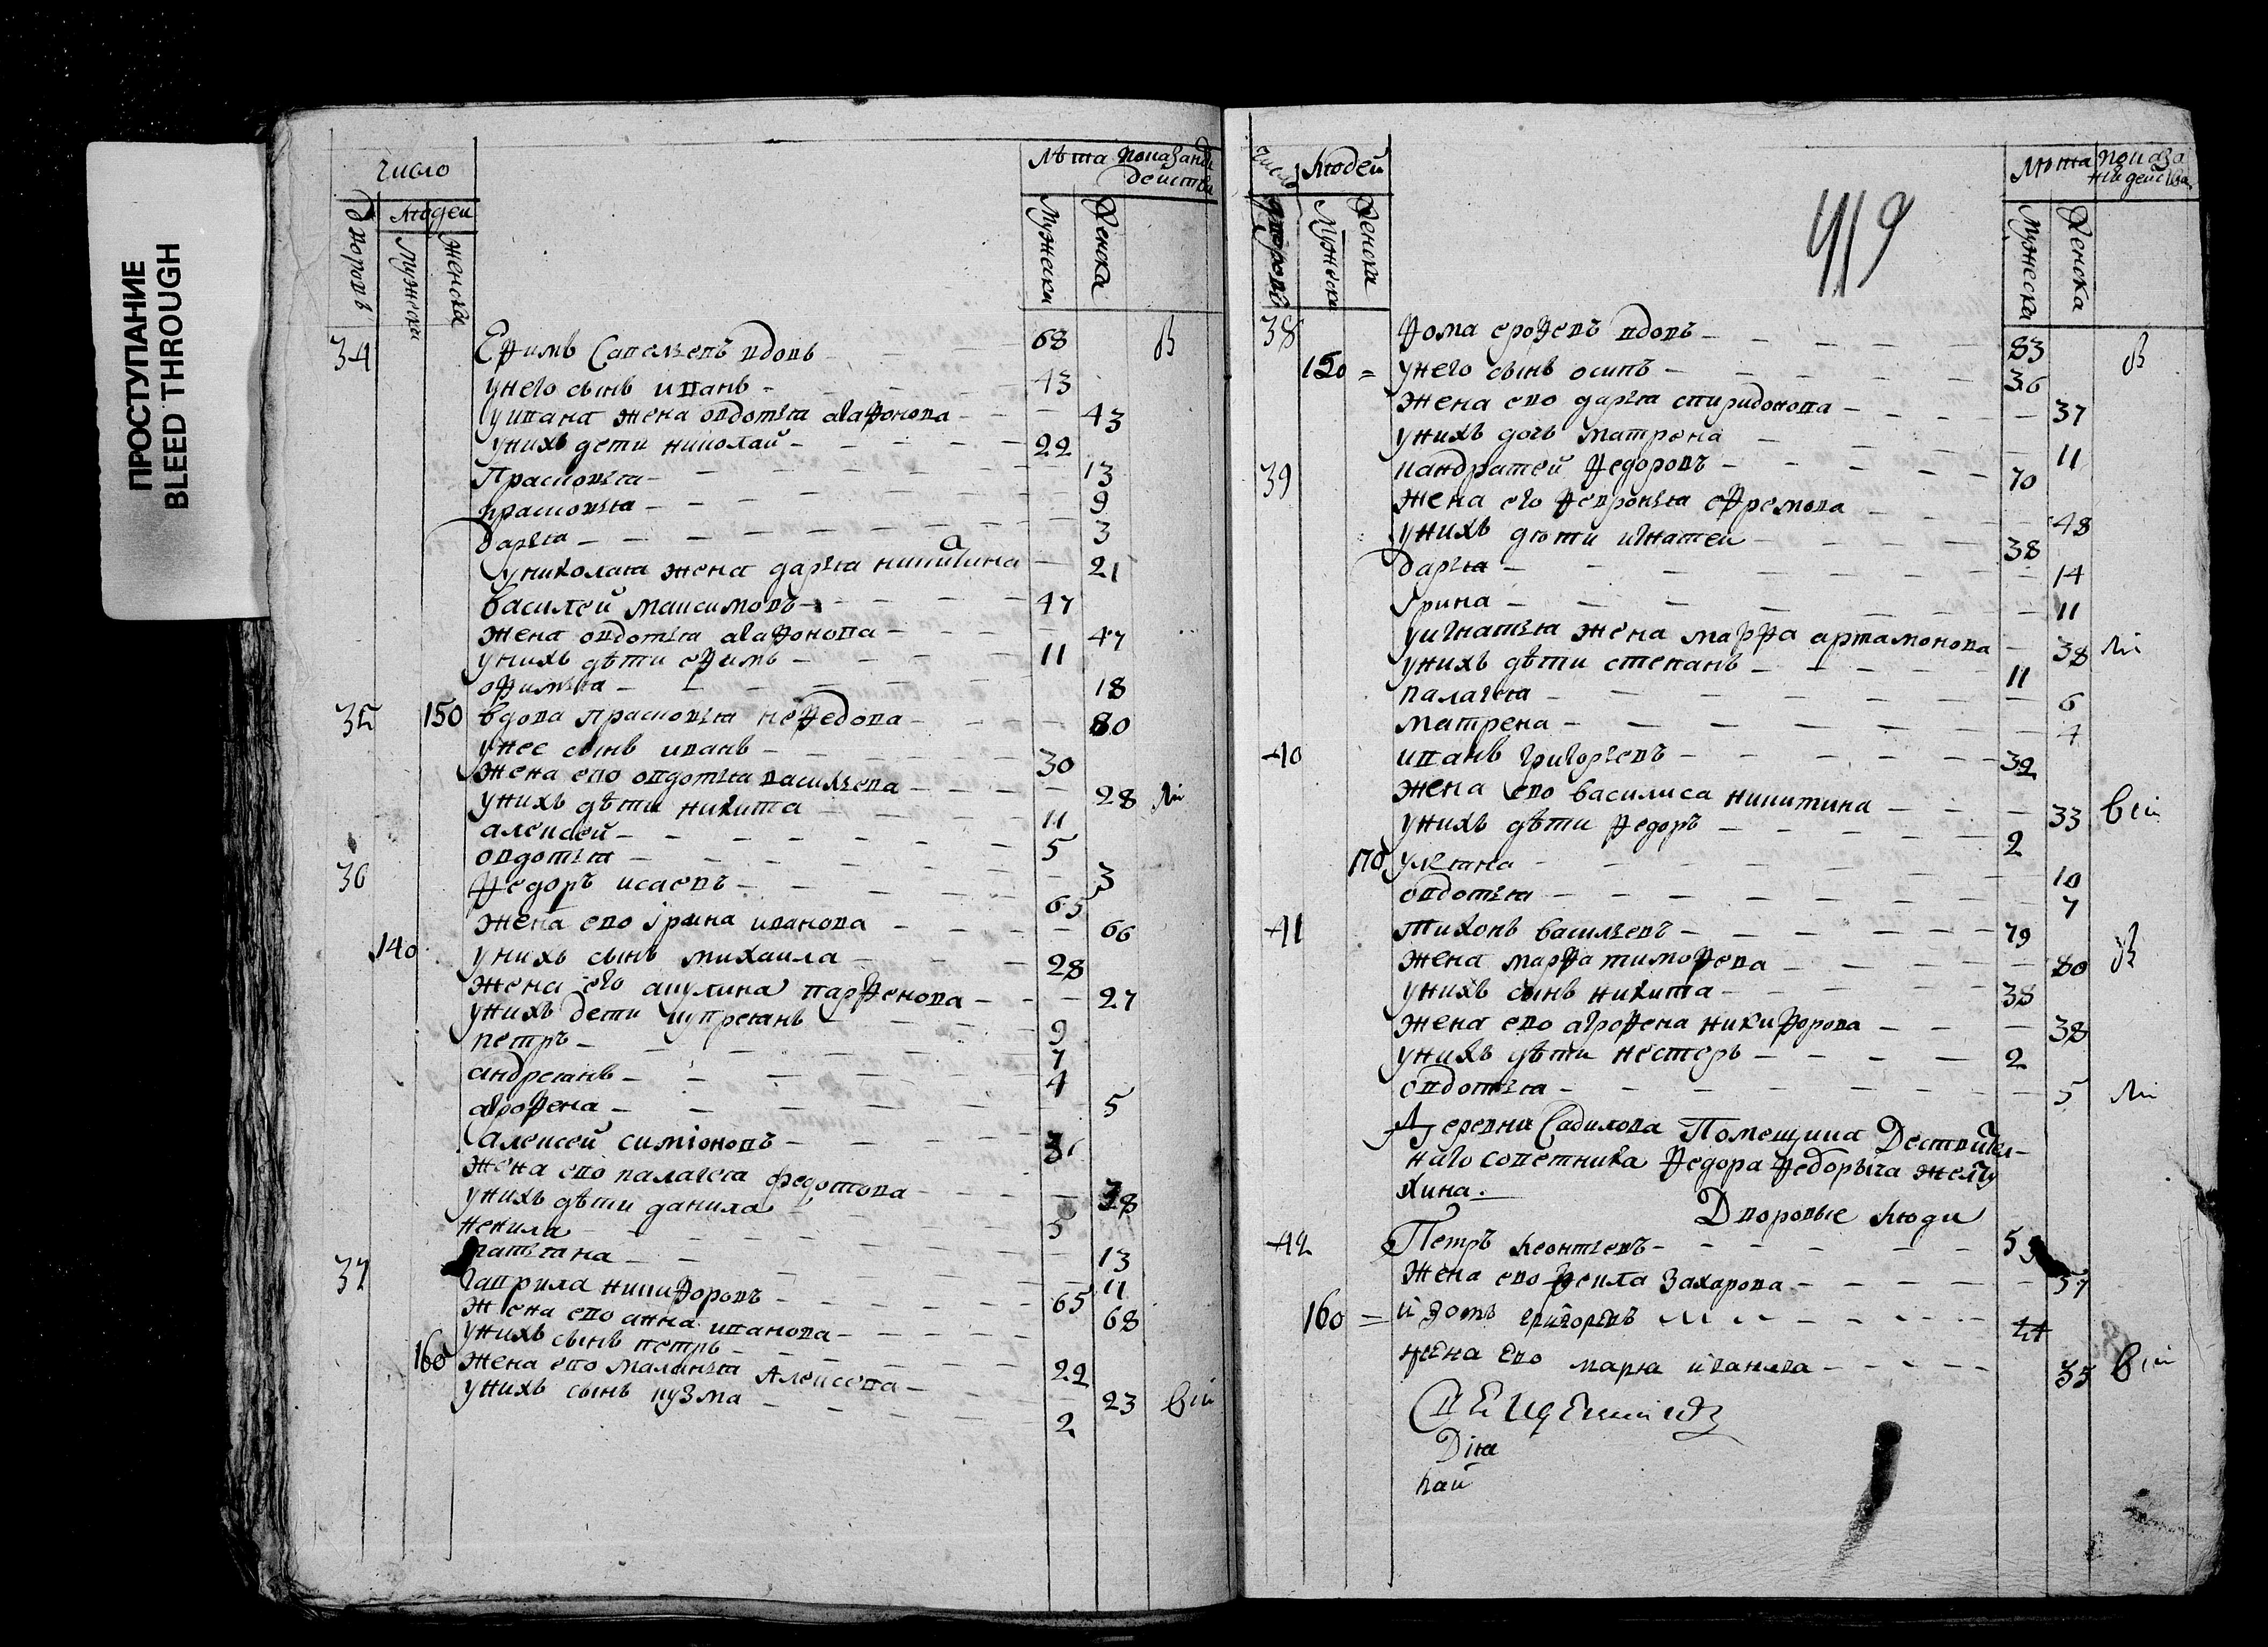 ПРОСТУПАНИЕ
BLEED THROUGH
число
Лѣта показанїе действа
дворовъ
людеи
мужеска
женска
Мужеска
Женска
34 Ефимъ Савельевъ вдовъ 68
у него сынъ иванъ 43
у ивана жена овдотья агафонова 43
у нихъ дети николай 22
Прасковья 13
прасковья 9
дарья 3
у николая жена дарья никитина 21
василей максимовъ 47
жена овдотья агафонова 47
у нихъ дѣти ефимъ 11
офимья 18
35 150 вдова прасковья нефедова 80
у нее сынъ иванъ 30
жена ево овдотья васильева 28
у нихъ дѣти никита 11
алексей 5
овдотья 3
36 Федоръ исаевъ 65
жена ево ірина иванова 66
140 у нихъ сынъ михаила 28
жена его акулина парфенова 27
у нихъ дети купреянъ 9
петръ 7
андреянъ 4
агрофена 5
алексей симіоновъ
жена ево палагея федотова 38
у нихъ дѣти данила 5
ненила 13
татьяна 11
37 гаврила никифоровъ 65
жена ево анна иванова 68
у нихъ сынъ петръ 22
160 жена ево маланья Алексеева 23
у нихъ сынъ кузма 2
число людей
Лѣта показа
нїи действа
дворовъ
Мужеска
Женска
Мужеска
Женска
419
38 Фома ерофеевъ вдовъ 83
150 у него сынъ осипъ 36
жена ево дарья спиридонова 37
у нихъ дочь матрена 11
39 кандратей Федоровъ 70
жена его февронья ефремова 48
у нихъ дѣти игнатеи 38
дарья 14
Ірина 11
у игнатья жена марфа артамонова 38
у нихъ дѣти степанъ 11
палагея 6
матрена 4
40 иванъ григорьевъ 32
жена ево василиса никитина 33
у нихъ дѣти федоръ 2
170 ульяна 10
овдотья 7
41 тихонъ васильевъ 79
жена марфа тимофева 80
у нихъ сынъ никита 38
жена ево агрофена никифорова 38
у нихъ дѣти нестеръ 2
овдотья 5
Деревни Садилова Помещика Дествител-
наго советника Федора Федорыча желту
хина.
Дворовые люди
42 Петръ леонтьевъ
жена ево фекла захарова 57
160 изотъ григорьевъ 44
жена Ево марья иванова 35
Священникъ
Дія
кай